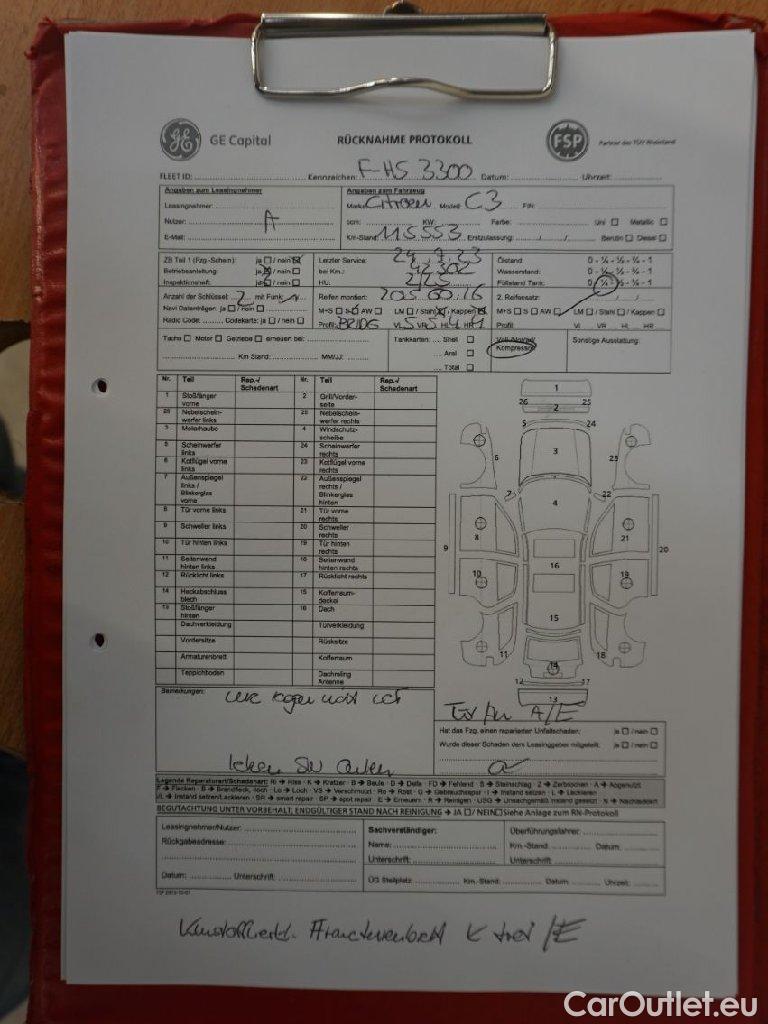 GE Capital
RÜCKNAHME PROTOKOLL
FSP
Partner des TÜV Rheinland
FLEET ID: Kennzeichen: F-HS 3300 Datum: Uhrzeit:
Angaben zum Leasingnehmer
Leasingnehmer:
Nutzer: A
E-Mail:
Angaben zum Fahrzeug
Marke: Citroen Modell: C3 FIN:
ccm: KW: Farbe: Uni □ Metallic □
Km-Stand: 115553 Erstzulassung: / / Benzin □ Diesel □
ZB Teil 1 (Fzg.-Schein): ja □ / nein ☒
Betriebsanleitung: ja ☒ / nein □
Inspektionsheft: ja □ / nein □
Letzter Service: 24.7.23
bei Km.: 42302
HU:
Ölstand 0 - ¼ - ½ - ¾ - 1
Wasserstand: 0 - ¼ - ½ - ¾ - 1
Füllstand Tank: 0 - ¼ - ½ - ¾ - 1
Anzahl der Schlüssel: 2 mit Funk
Navi Datenträger: ja □ / nein □
Radio Code: Codekarte: ja □ / nein □
Reifen montiert:
M+S □ S ☒ AW □ LM □ / Stahl ☒ / Kappen ☒
Profil: VL VR HL HR
2. Reifensatz:
M+S □ S □ AW □ LM □ / Stahl □ / Kappen □
Profil VL VR HL HR
Tacho □ Motor □ Getriebe □ erneuert bei:
Km Stand: MM/JJ:
Tankkarten: Shell □
Aral □
Total □
Voll-/Notrad/
Kompressor
Sonstige Ausstattung:
Nr. Teil Rep.-/ Schadenart Nr. Teil Rep.-/ Schadenart
1 Stoßfänger vorne 2 Grill/Vorderseite
26 Nebelscheinwerfer links 25 Nebelscheinwerfer rechts
3 Motorhaube 4 Windschutzscheibe
5 Scheinwerfer links 24 Scheinwerfer rechts
6 Kotflügel vorne links 23 Kotflügel vorne rechts
7 Außenspiegel links / Blinkerglas vorne 22 Außenspiegel rechts / Blinkerglas hinten
8 Tür vorne links 21 Tür vorne rechts
9 Schweller links 20 Schweller rechts
10 Tür hinten links 19 Tür hinten rechts
11 Seitenwand hinten links 18 Seitenwand hinten rechts
12 Rücklicht links 17 Rücklicht rechts
14 Heckabschlussblech 15 Kofferraumdeckel
13 Stoßfänger hinten 16 Dach
Dachverkleidung Türverkleidung
Vordersitze Rücksitze
Armaturenbrett Kofferraum
Teppichboden Dachreling Antenne
1
26 25
2
5 24
3
6 23
7 22
4
8 21
9 20
10 16 19
15
11 18
14
12 17
13
Bemerkungen:
A/E
Hat das Fzg. einen reparierten Unfallschaden: ja □ / nein □
Wurde dieser Schaden dem Leasinggeber mitgeteilt: ja □ / nein □
Legende Reparaturart/Schadenart: Ri → Riss · K → Kratzer · B → Beule · D → Delle · FD → Fehlend · S → Steinschlag · Z → Zerbrochen · A → Abgenutzt
F → Flecken · B → Brandfleck, -loch · Lo → Loch · VS → Verschmutzt · Ro → Rost · G → Gebrauchsspur · I → Instand setzen · L → Lackieren
I/L → Instand setzen/Lackieren · SR → smart repair · SP → spot repair · E → Erneuern · R → Reinigen · USG → Unsachgemäß instand gesetzt · N → Nachlackiert
BEGUTACHTUNG UNTER VORBEHALT, ENDGÜLTIGER STAND NACH REINIGUNG → JA □ / NEIN □ Siehe Anlage zum RN-Protokoll
Leasingnehmer/Nutzer:
Rückgabeadresse:
Datum: Unterschrift:
Sachverständiger:
Name:
Unterschrift:
Überführungsfahrer:
Km.-Stand: Datum:
Unterschrift:
ÜG Stellplatz: Km. Stand: Datum Uhrzeit:
CarOutlet.eu